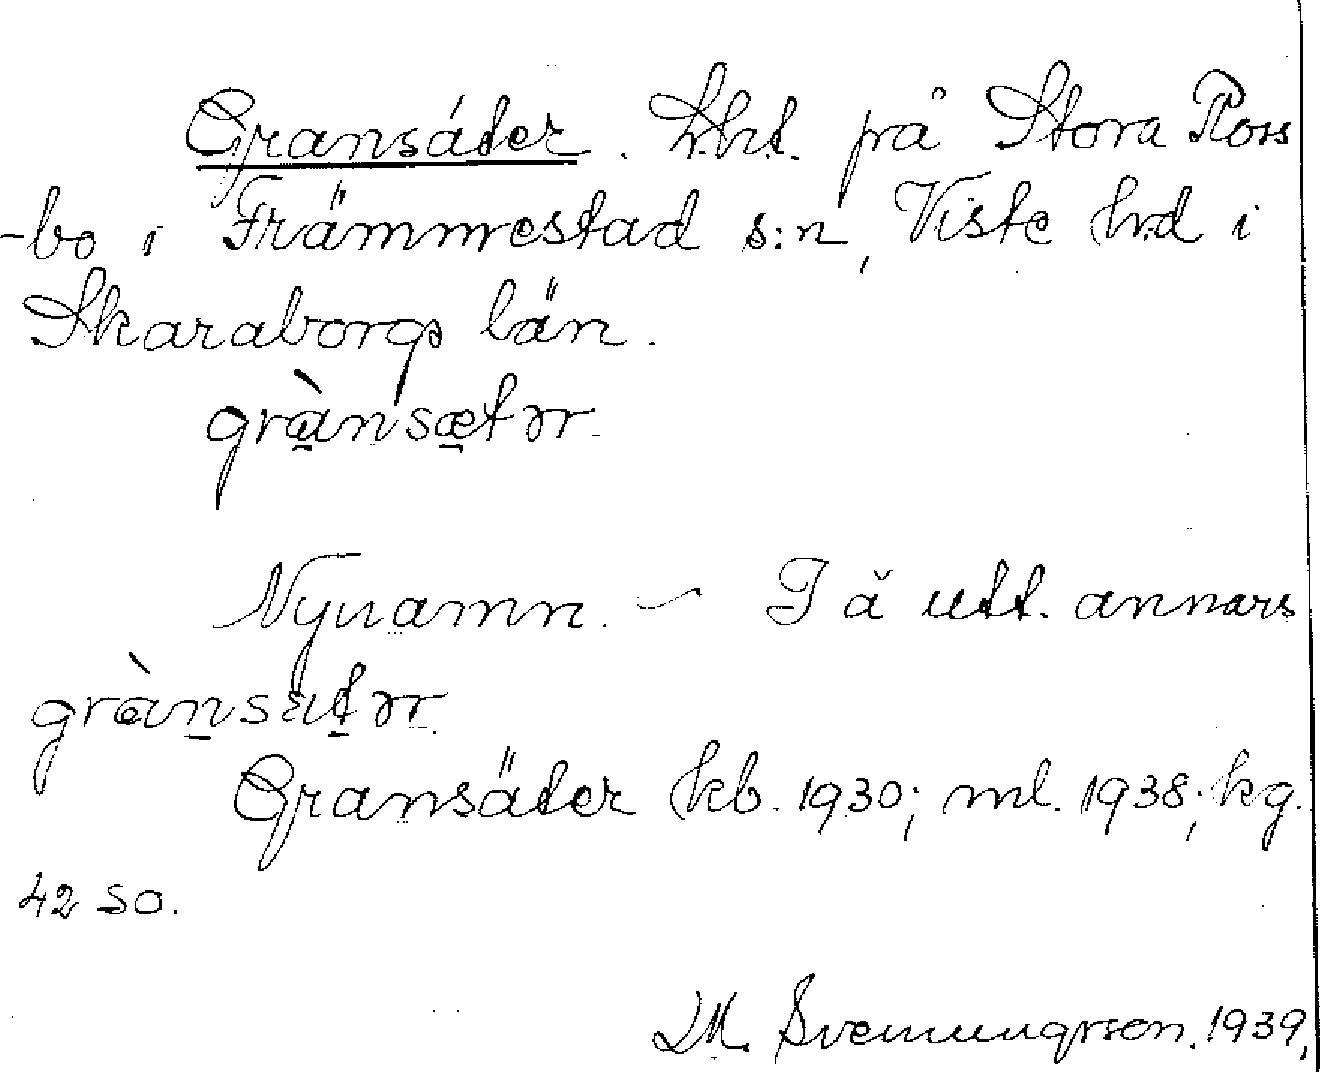 Gransäter. Lht. på Stora Ross
-bo i Främmestad s:n, Viste hd i
Skaraborgs län.
grànsætər.
Nynamn. – I ä utt. annars
grànsætər.
Gransäter kb. 1930; ml. 1938; kg.
42 so.
M. Svenungsson. 1939.